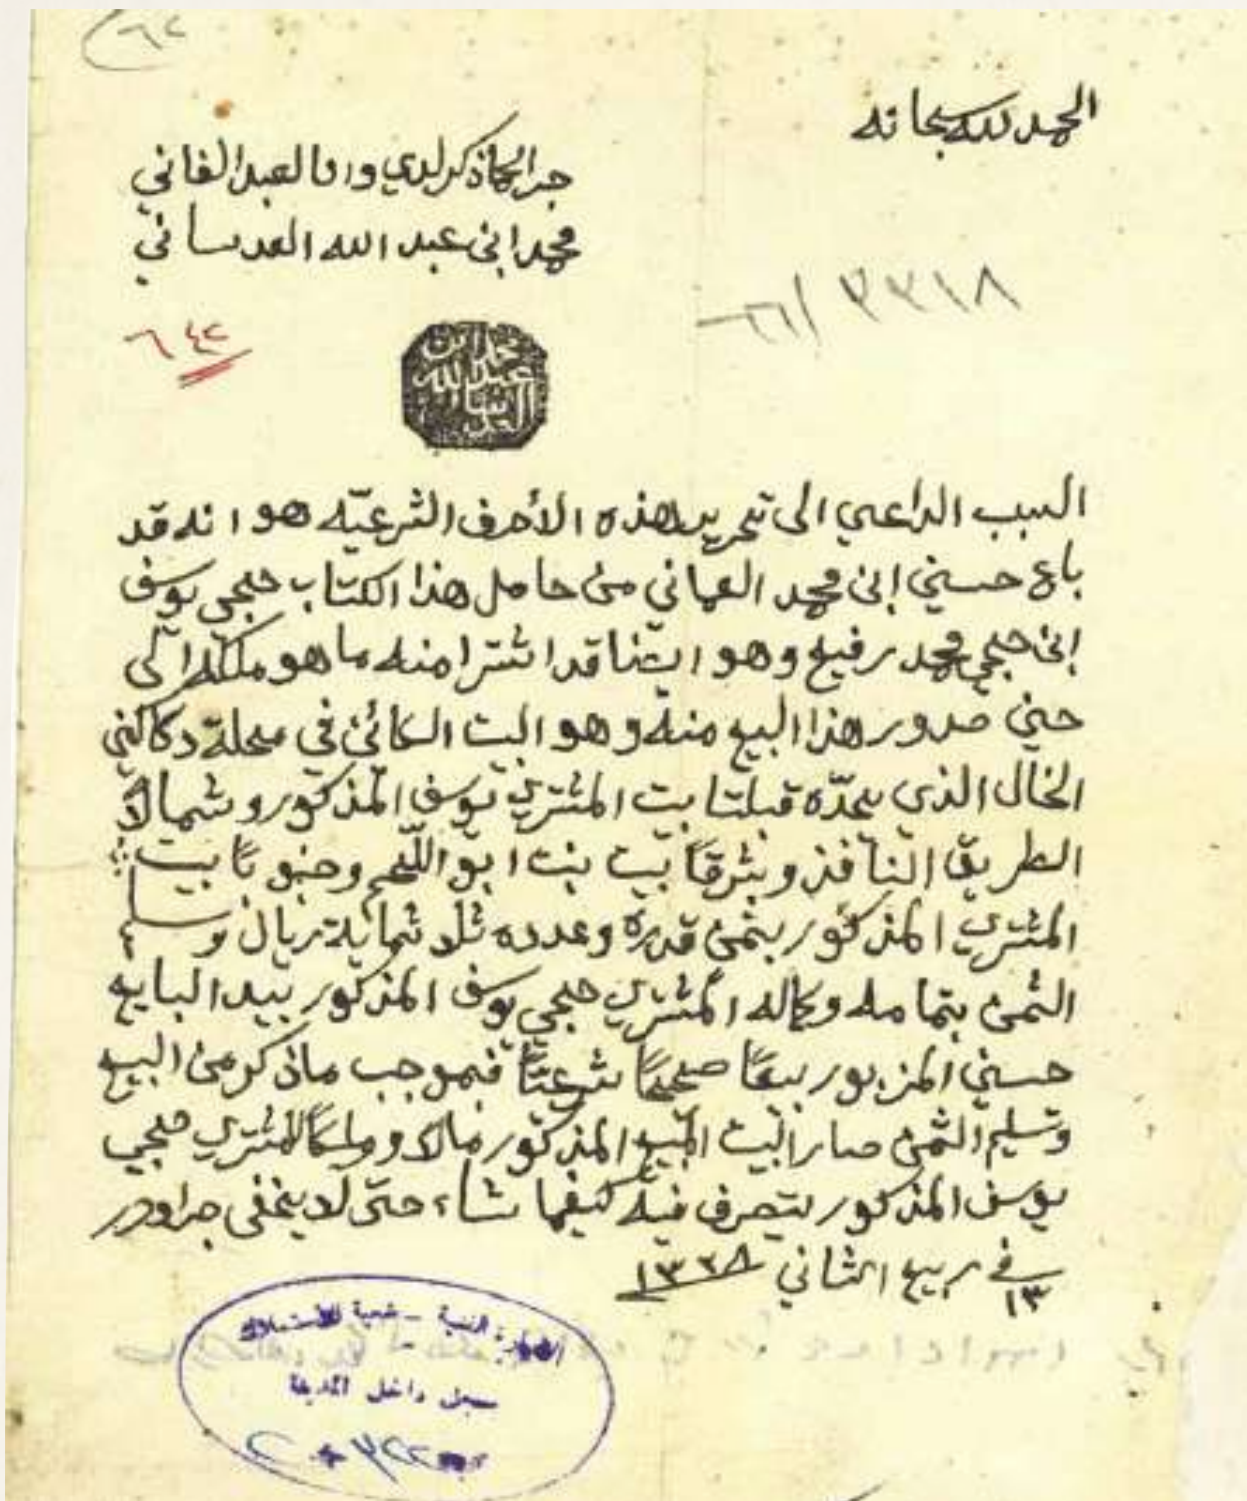 الحمد لله سبحانه
جرا كما ذكر لدي وانا العبد الفاني
محمد ابن عبد الله العدساني
٦٤٢
محمد بن عبد الله العدساني
السبب الداعي الى تحرير هذه الأحرف الشرعيّه هو انه قد
باع حسين ابن محمد العماني من حامل هذا الكتاب حجي يوسف
ابن حجي محمد رفيع وهو ايضا قد اشترا منه ما هو ملكه الى
حين صدور هذا البيع منه وهو البيت الكائن في محلة دكاكين
الخال الذي يحدّه قبلتا بيت المشتري يوسف المذكور وشمالاً
الطريق النافذ وشرقاً بيت بنت ابو اللّحم وجنوباً بيت
المشتري المذكور بثمن قدره وعدده ثلاثماية ريال وسلم
الثمن بتمامه وكماله المشتري حجي يوسف المذكور بيد البايع
حسين المزبور بيعاً صحيحاً شرعيّاً فبموجب ما ذكر من البيع
وتسليم الثمن صار البيت المبيع المذكور مالا وملكاً للمشتري حجي
يوسف المذكور يتصرف فيه كيفما شاء حتى لا يخفى جرا وحرر
في ١٣ ربيع الثاني ١٣٣٨
الادارة الفنية - شعبة الاستملاك
سجل داخل المدينة